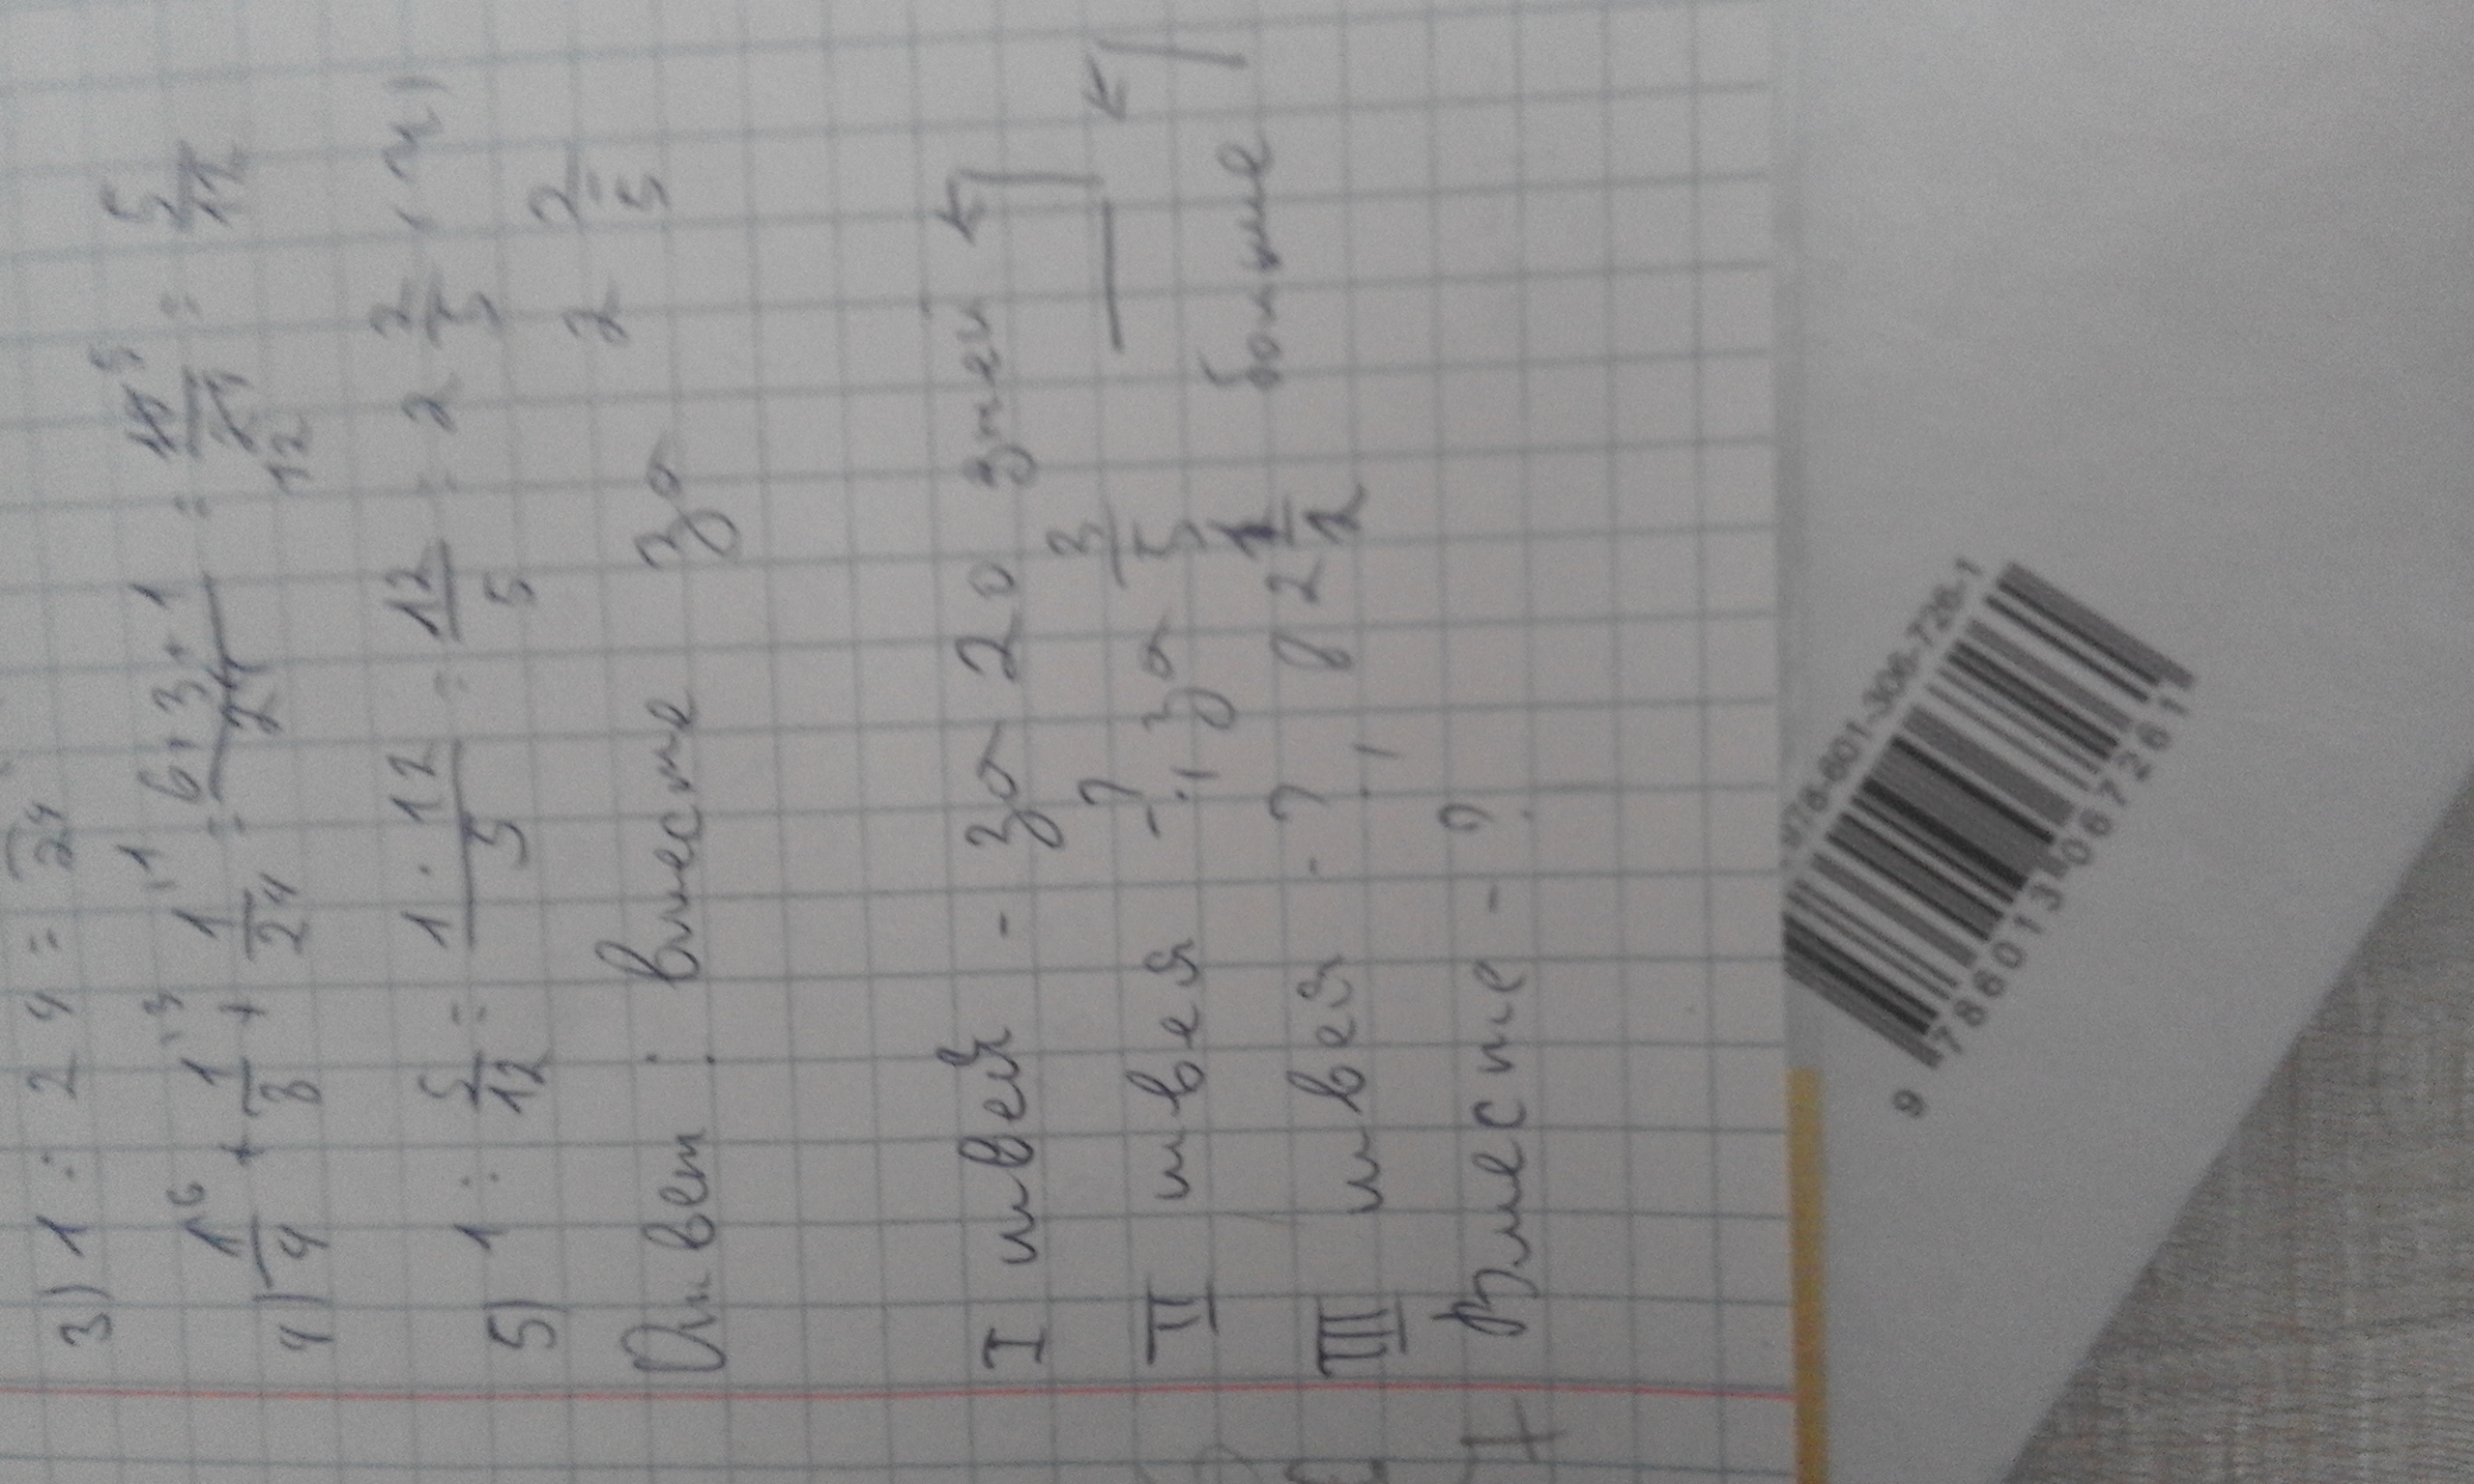 3) 1 : 24 = 1/24
4) 1/4 + 1/8 + 1/24 = 6+3+1/24 = 10/24 = 5/12
5) 1 : 5/12 = 1·12/5 = 12/5 = 2 2/5 (ч)
Ответ: вместе за 2 2/5
I швея - за 20 дней
II швея - ? за 3/5
III швея - ? в 2 1/2 больше
Вместе - ?
978-601-306-726-1
9 786013 067261